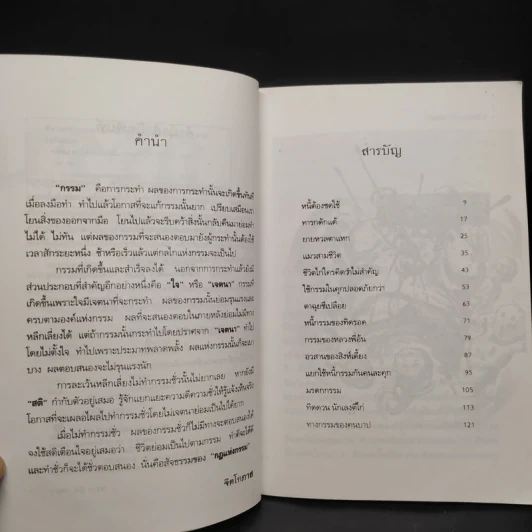 คำนำ
"กรรม" คือการกระทำ ผลของการกระทำนั้นจะเกิดขึ้นทันที
เมื่อลงมือทำ ทำไปแล้วโอกาสที่จะแก้กรรมนั้นยาก เปรียบเสมือนเรา
โยนสิ่งของออกจากมือ โยนไปแล้วจะรีบคว้าสิ่งนั้นกลับคืนมาย่อมทำ
ไม่ได้ ไม่ทัน แต่ผลของกรรมที่จะสนองตอบมายังผู้กระทำนั้นต้องใช้
เวลาสักระยะหนึ่ง ช้าหรือเร็วแล้วแต่กลไกแห่งกรรมจะเป็นไป
กรรมที่เกิดขึ้นและสำเร็จลงได้ นอกจากการกระทำแล้วยังมี
ส่วนประกอบที่สำคัญอีกอย่างหนึ่งคือ "ใจ" หรือ "เจตนา" กรรมที่
เกิดขึ้นเพราะใจมีเจตนาที่จะกระทำ ผลของกรรมนั้นย่อมรุนแรงและ
ครบตามองค์แห่งกรรม ผลที่จะสนองตอบในภายหลังย่อมไม่มีทาง
หลีกเลี่ยงได้ แต่ถ้ากรรมนั้นกระทำไปโดยปราศจาก "เจตนา" ทำไป
โดยไม่ตั้งใจ ทำไปเพราะประมาทพลาดพลั้ง ผลแห่งกรรมนั้นก็จะเบา
บาง ผลตอบสนองจะไม่รุนแรงนัก
การละเว้นหลีกเลี่ยงไม่ทำกรรมชั่วนั้นไม่ยากเลย หากยังมี
"สติ" กำกับตัวอยู่เสมอ รู้จักแยกแยะความดีความชั่วให้รู้แจ้งเห็นจริง
โอกาสที่จะเผลอไผลไปทำกรรมชั่วโดยไม่เจตนาย่อมเป็นไปได้ยาก
เมื่อไม่ทำกรรมชั่ว ผลของกรรมชั่วก็ไม่มีทางจะตอบสนองได้
จงใช้สติเตือนใจอยู่เสมอว่า ชีวิตย่อมเป็นไปตามกรรม ทำดีจะได้ดี
และทำชั่วก็จะได้ชั่วตอบสนอง นั่นคือสัจธรรมของ "กฎแห่งกรรม"
จิตโกภาส
สารบัญ
หนี้ต้องชดใช้ 9
ทารกดักแด้ 17
ยายหวลตาแหก 25
แมวสามชีวิต 35
ชีวิตไก่ใครคิดว่าไม่สำคัญ 43
ใช้กรรมในคุกปลอดภัยกว่า 53
ตาฉุยขี้เปลือย 63
หนี้กรรมของทิดรอด 71
กรรมของหลวงพี่อ้น 79
อวสานของสิงห์เตี้ยง 87
แยกใช้หนี้กรรมกันคนละคุก 95
มรดกกรรม 105
ทิดควน นักเลงตีไก่ 113
ทางกรรมของคนบาป 121